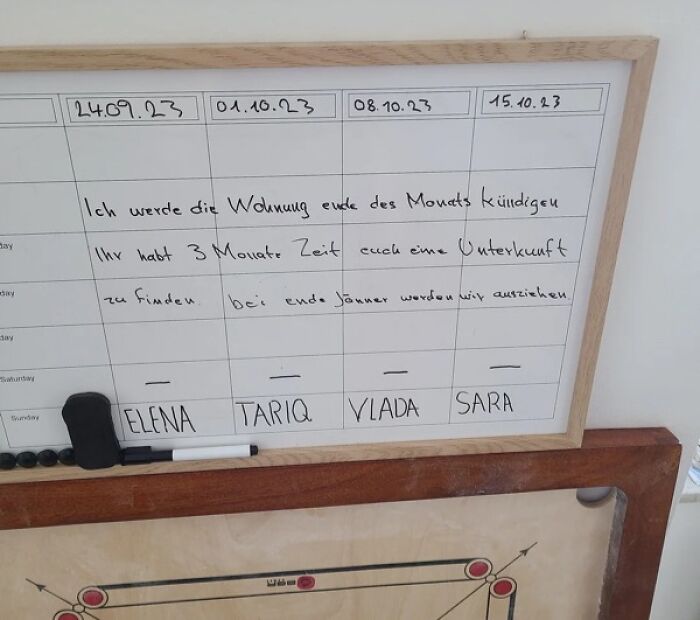 24.09.23 01.10.23 08.10.23 15.10.23
Ich werde die Wohnung ende des Monats kündigen
day
Ihr habt 3 Monate Zeit euch eine Unterkunft
day
zu finden. bei ende Jänner werden wir ausziehen.
day
Saturday — — — —
Sunday ELENA TARIQ VLADA SARA